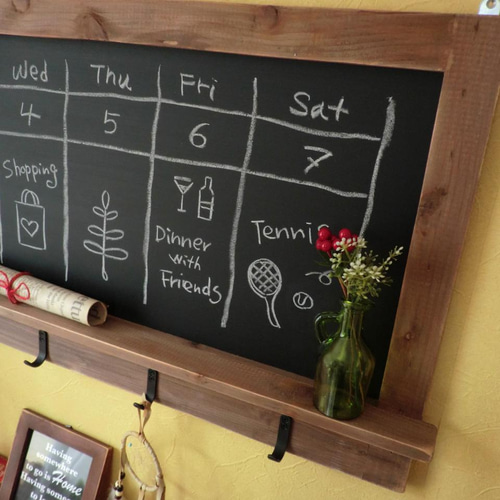 Wed Thu Fri Sat
4 5 6 7
Shopping
Dinner
with
Friends
Tennis
Having
somewhere
to go is Home
Having someo